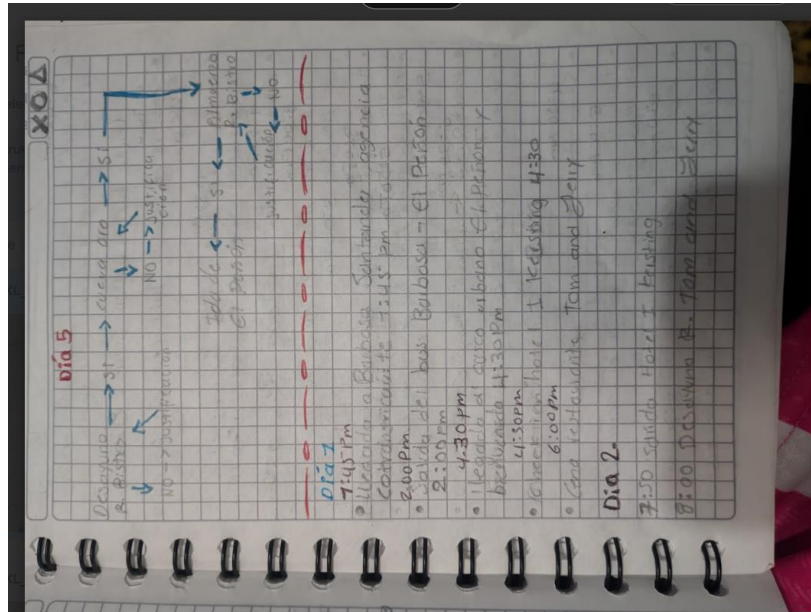 Día 5
Desayuno → SI → cueva oro → SI
R. Bistro
NO → Justificación
NO → Justifica
ción
Almuerzo
R. Bistro
← SI ←
NO
Justificando
Ida de
El Peñón
Día 1
1:45 Pm
• Llegada a Barbosa Santander agencia
Cotransricaurte 1:45 pm
2:00 Pm
• Salida del bus Barbosa - El Peñon
2:00 pm
4:30 pm
• Llegada al casco urbano El Peñon y
bienvenida 4:30 Pm
4:30 Pm
• Check in hotel I Kersting 4:30
6:00 Pm
• Cena restaurante Tom and Jerry
Dia 2.
7:50 salida Hotel I
8:00 Desayuno R. Tom and Jerry